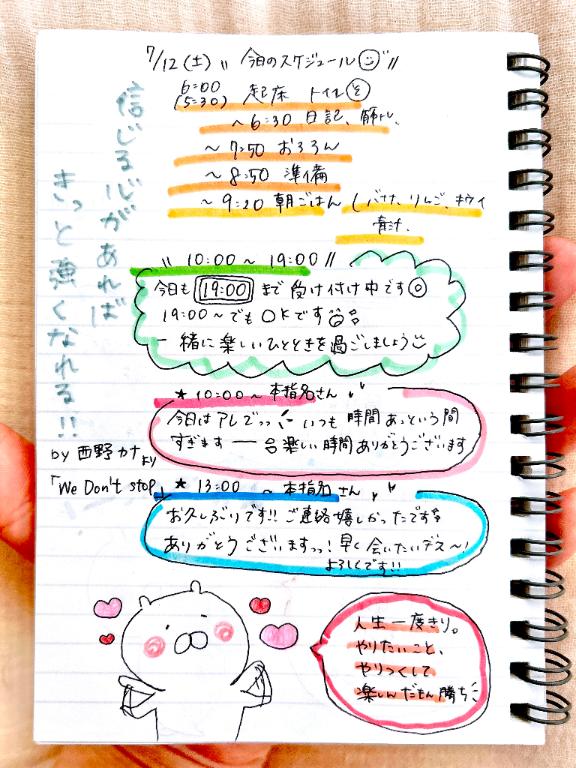 7/12(土) 〃 今日のスケジュール 〃
6:00
(5:30) 起床 トイレ
〜6:30 日記、筋トレ、
〜7:50 おろろん
〜8:50 準備
〜9:20 朝ごはん (バナナ、リんご、キウイ
青汁、
信じる心があれば
きっと強くなれる!!
by 西野カナより
「We Don't stop」
〃 10:00〜19:00 〃
今日も 19:00 まで 受け付け中です
19:00〜でもOKです
一緒に楽しいひとときを過ごしましょう
★10:00〜本指名さん
今日はアレでっっ いつも 時間あっという間
すぎます ー 楽しい時間ありがとうございます
★13:00 〜本指名さん
お久しぶりです!! ご連絡嬉しかったです
ありがとうございますっっ! 早く会いたいデス〜!
よろしくです!!
人生一度きり。
やりたいこと、
やりつくして
楽しんだもん勝ち